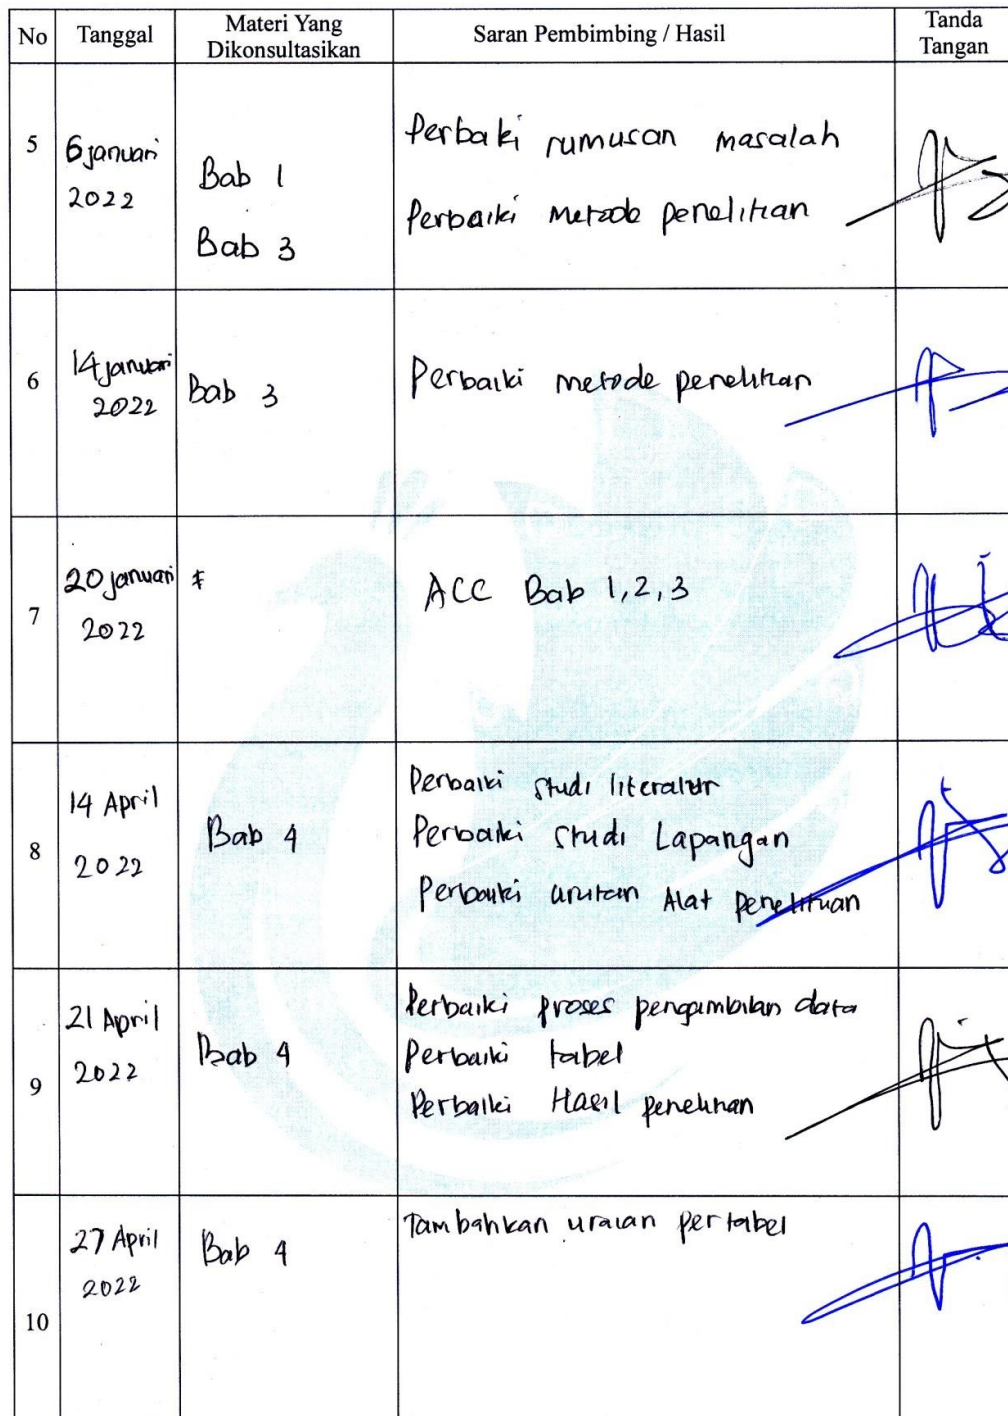 No Tanggal Materi Yang Dikonsultasikan Saran Pembimbing / Hasil Tanda Tangan
5
6 januari
2022
Bab 1
Bab 3
Perbaki rumusan masalah
Perbaiki metode penelitian
6
14 januari
2022
Bab 3
Perbaiki metode penelitian
7
20 januari
2022
ACC Bab 1,2,3
8
14 April
2022
Bab 4
Perbaiki studi literatur
Perbaiki studi Lapangan
Perbaiki urutan Alat penelitian
9
21 April
2022
Bab 4
Perbaiki proses pengambilan data
Perbaiki tabel
Perbaiki Hasil penelitian
10
27 April
2022
Bab 4
Tambahkan uraian per tabel